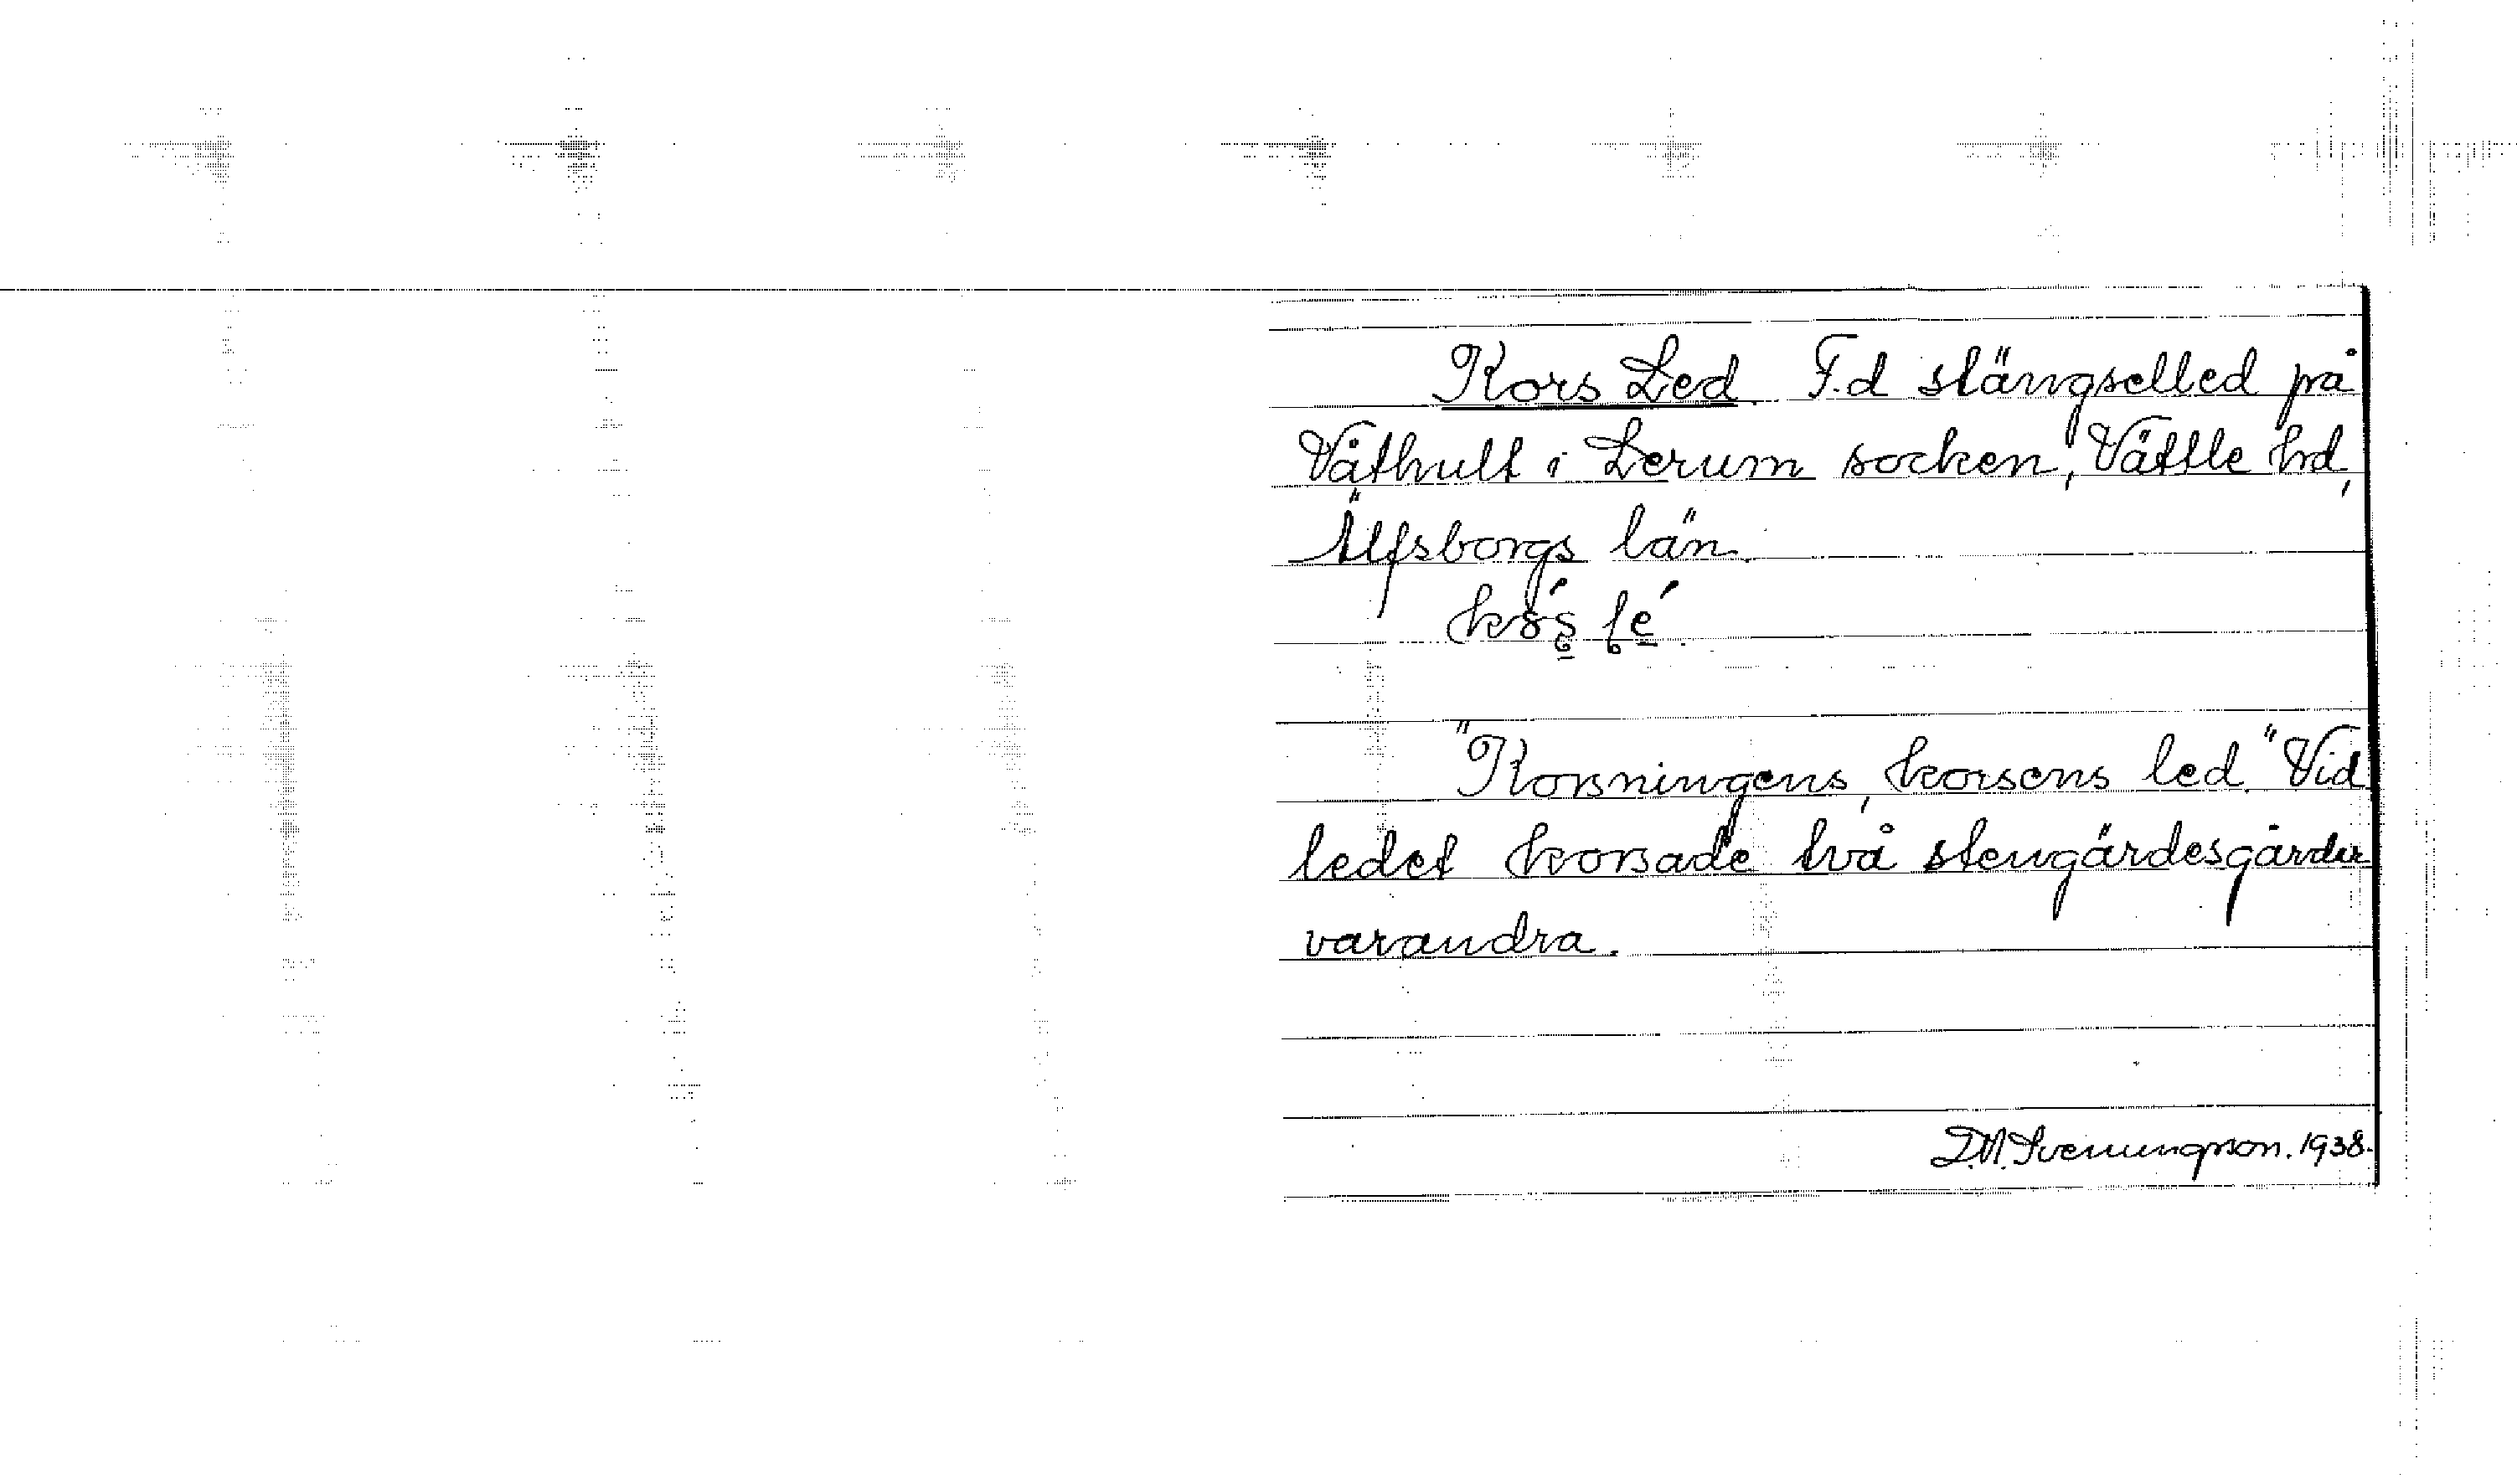 Kors Led. F.d stängselled på
Våthult i Lerum socken, Vättle hd,
Älfsborgs län.
"Korsningens, korsens led." Vid
ledet korsade två stengärdesgårder
varandra.
D.A. Svenungsson. 1938.